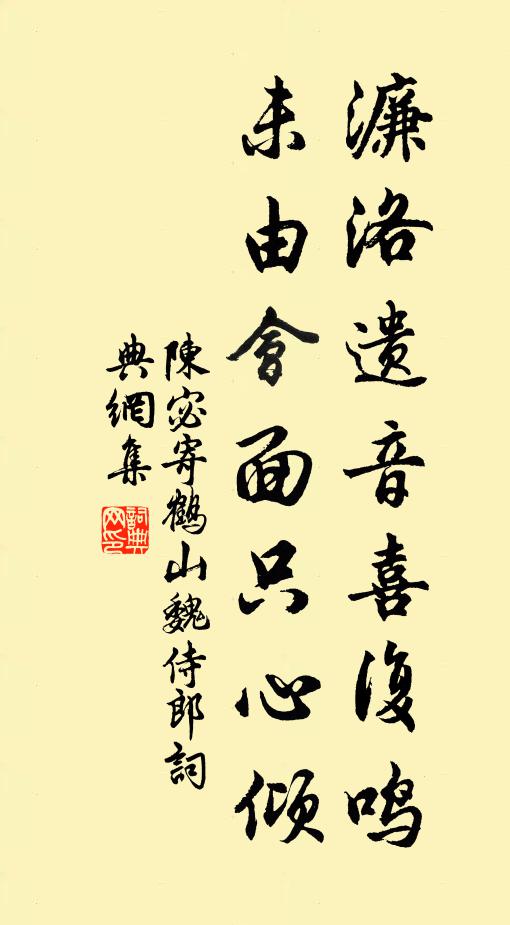 濂洛遗音喜復鸣
未由會面只心倾
陳宓寄鶴山魏侍郎詞
典網集
詞典
网印